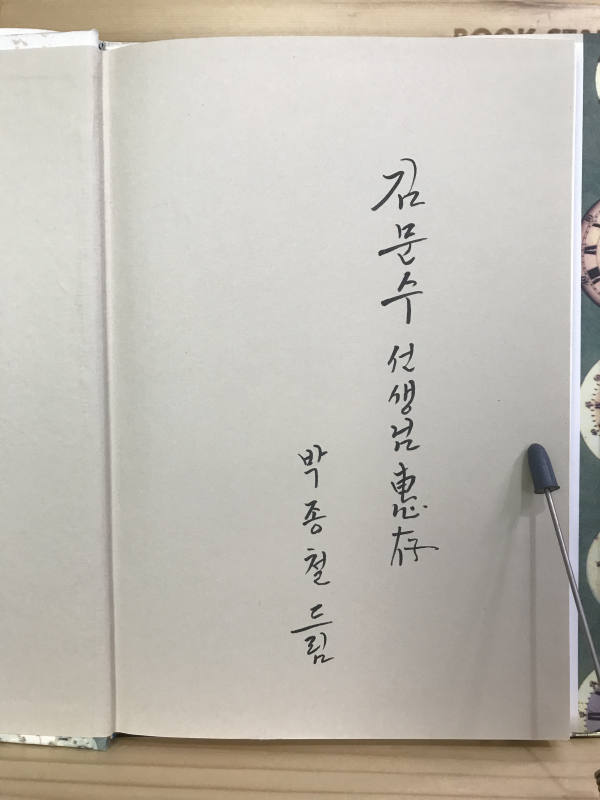 김문수 선생님 惠存
박종철 드림